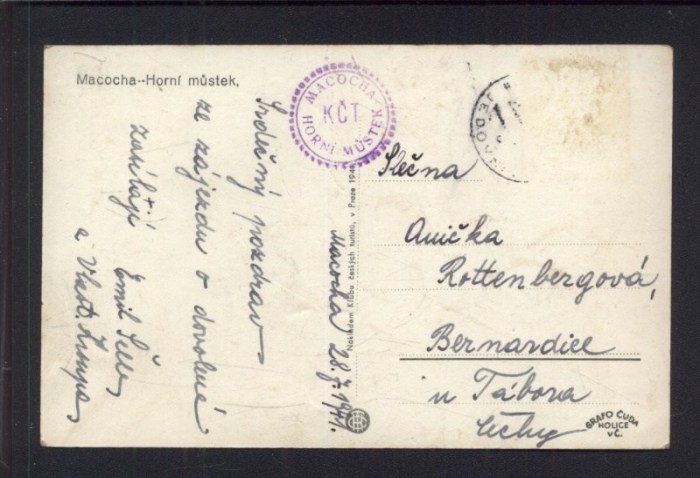 Macocha--Horní můstek,
MACOCHA
KČT
HORNÍ MŮSTEK
Srdečný pozdrav
ze zájezdu o dovolené
zasílají
Emil
a Vlast.
Macocha 28./7. 1941.
Nákladem Klubu českých turistů, v Praze
Slečna
Anička
Rottenbergová,
Bernardice
u Tábora
Čechy
GRAFO ČUDA
HOLICE
v Č.